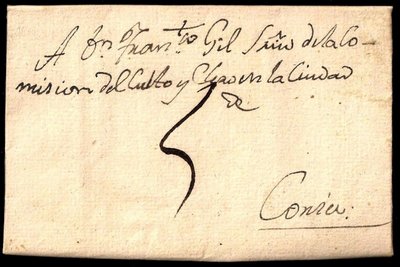 A Dn. Franco. Gil Srio dela Co-
mision del Culto y Clero en la Ciudad
de
5
Coria.